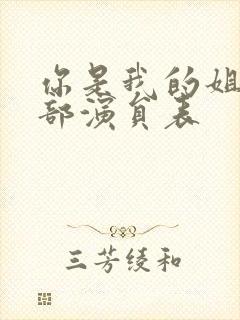 你是我的姐
部演员表
三芳绫和